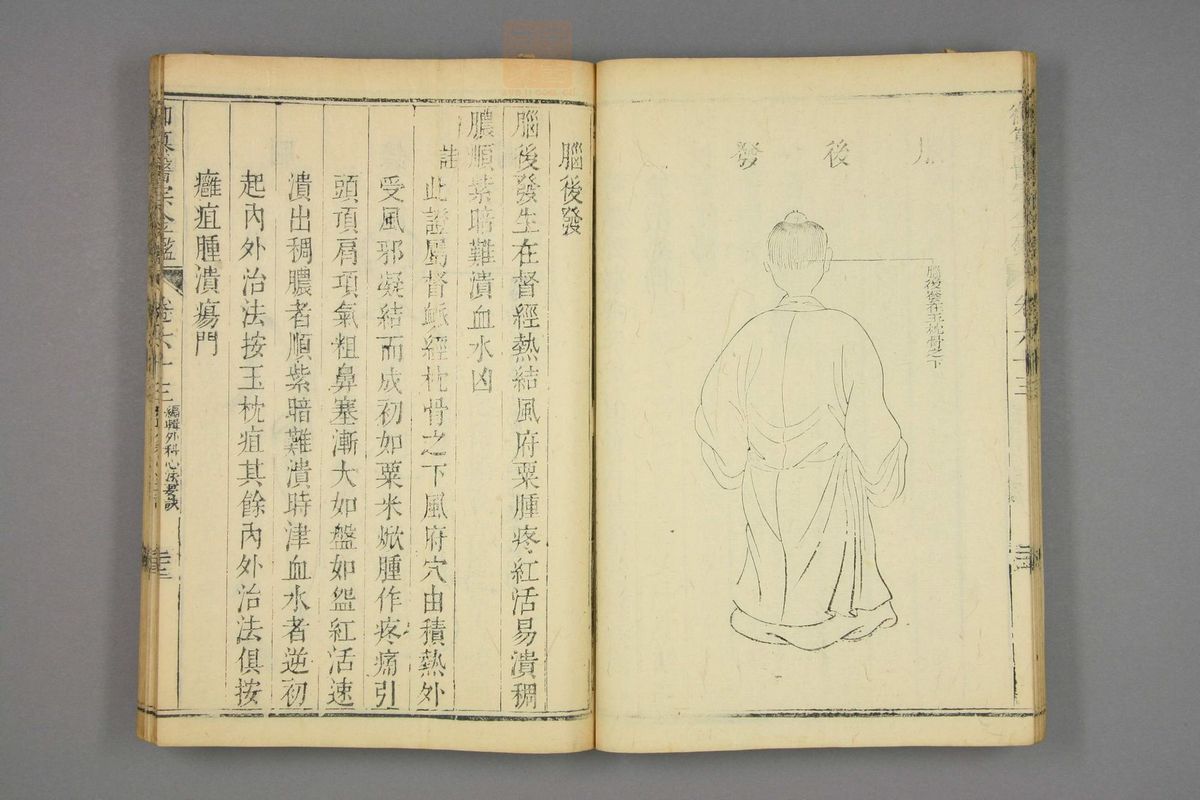 卷六十三
後發
腦後發在玉枕骨之下
腦後發
腦後發生在督經熱結風府粟腫疼紅活易潰稠
膿順紫暗難潰血水凶
註
此證屬督脈經枕骨之下風府穴由積熱外
受風邪凝結而成初如粟米焮腫作疼痛引
頭頂肩項氣粗鼻塞漸大如盤如盌紅活速
潰出稠膿者順紫暗難潰時津血水者逆初
起內外治法按玉枕疽其餘內外治法俱按
癰疽腫潰瘍門
御纂醫宗金鑑 卷六十三 編輯外科心法要訣